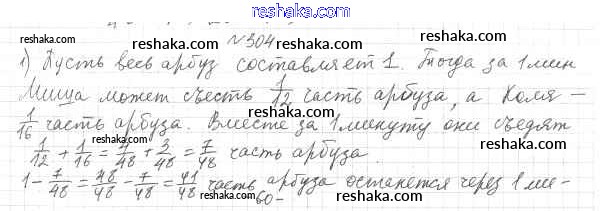 reshaka.com
reshaka.com reshaka.com reshaka.com
№304
1) Пусть весь арбуз составляет 1. Тогда за 1 мин
Миша может съесть 1/12 часть арбуза, а Коля –
1/16 часть арбуза. Вместе за 1 минуту они съедят
reshaka.com reshaka.com reshaka.com
1/12 + 1/16 = 4/48 + 3/48 = 7/48 часть арбуза.
1 - 7/48 = 48/48 - 7/48 = 41/48 часть арбуза останется через 1 ми-
- 60 -
reshaka.com reshaka.com reshaka.com